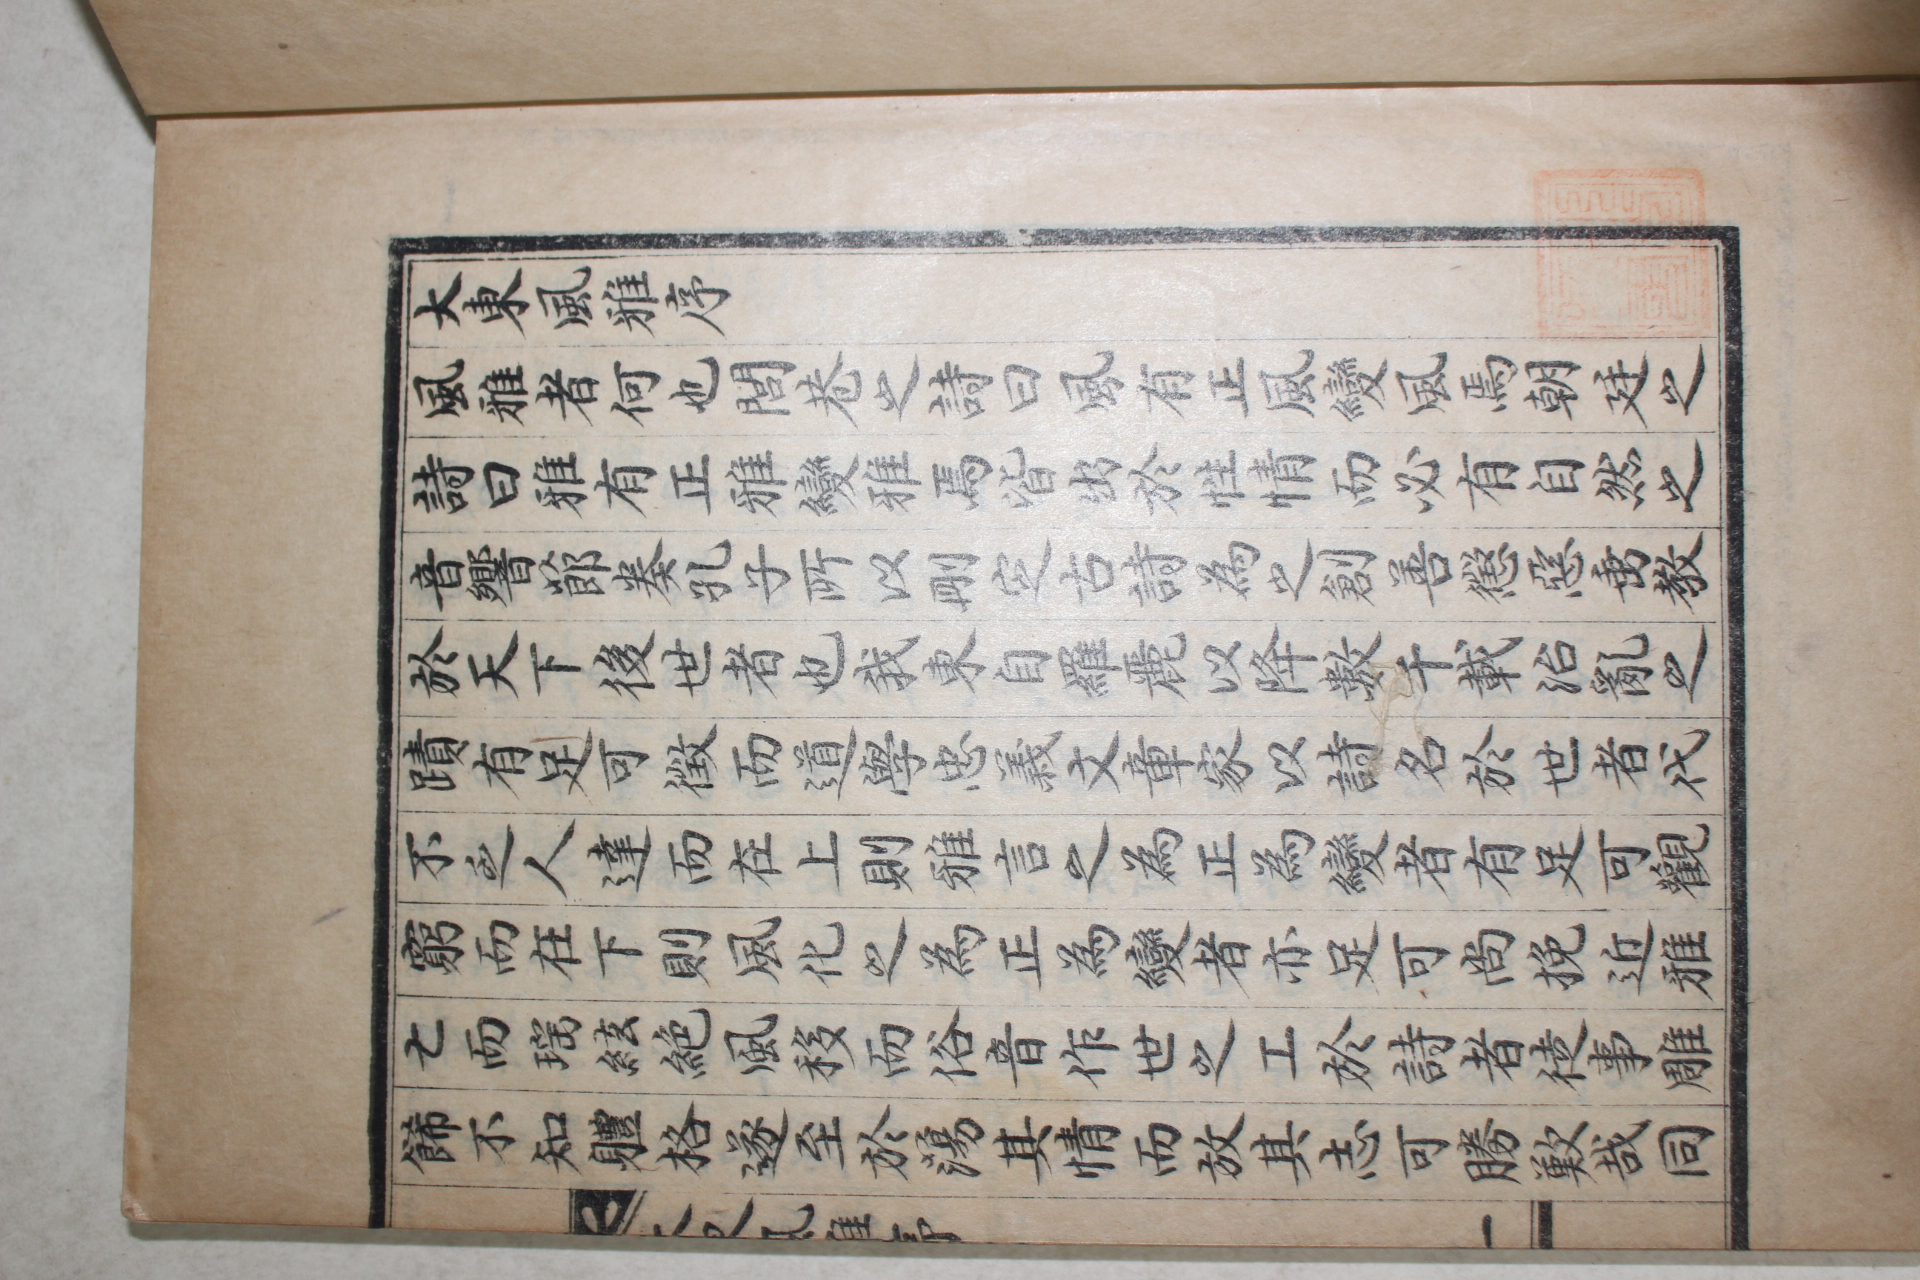 大東風雅序
風雅者何也閭巷之詩曰風有正風變風焉朝廷之
詩曰雅有正雅變雅焉皆出於性情而必有自然之
音響節奏孔子所以刪定古詩為之創善懲惡垂教
於天下後世者也我東自羅麗以降數千載治亂之
蹟有足可徵而道學忠義文章家以詩名於世者代
不乏人達而在上則雅言之為正為變者有足可觀
窮而在下則風化之為正為變者亦足可尚挽近雅
亡而瑶絃絶風移而俗音作世之工於詩者徒事雕
餙不知軆格遂至於蕩其情而放其志可勝歎哉同
大東風雅序
一